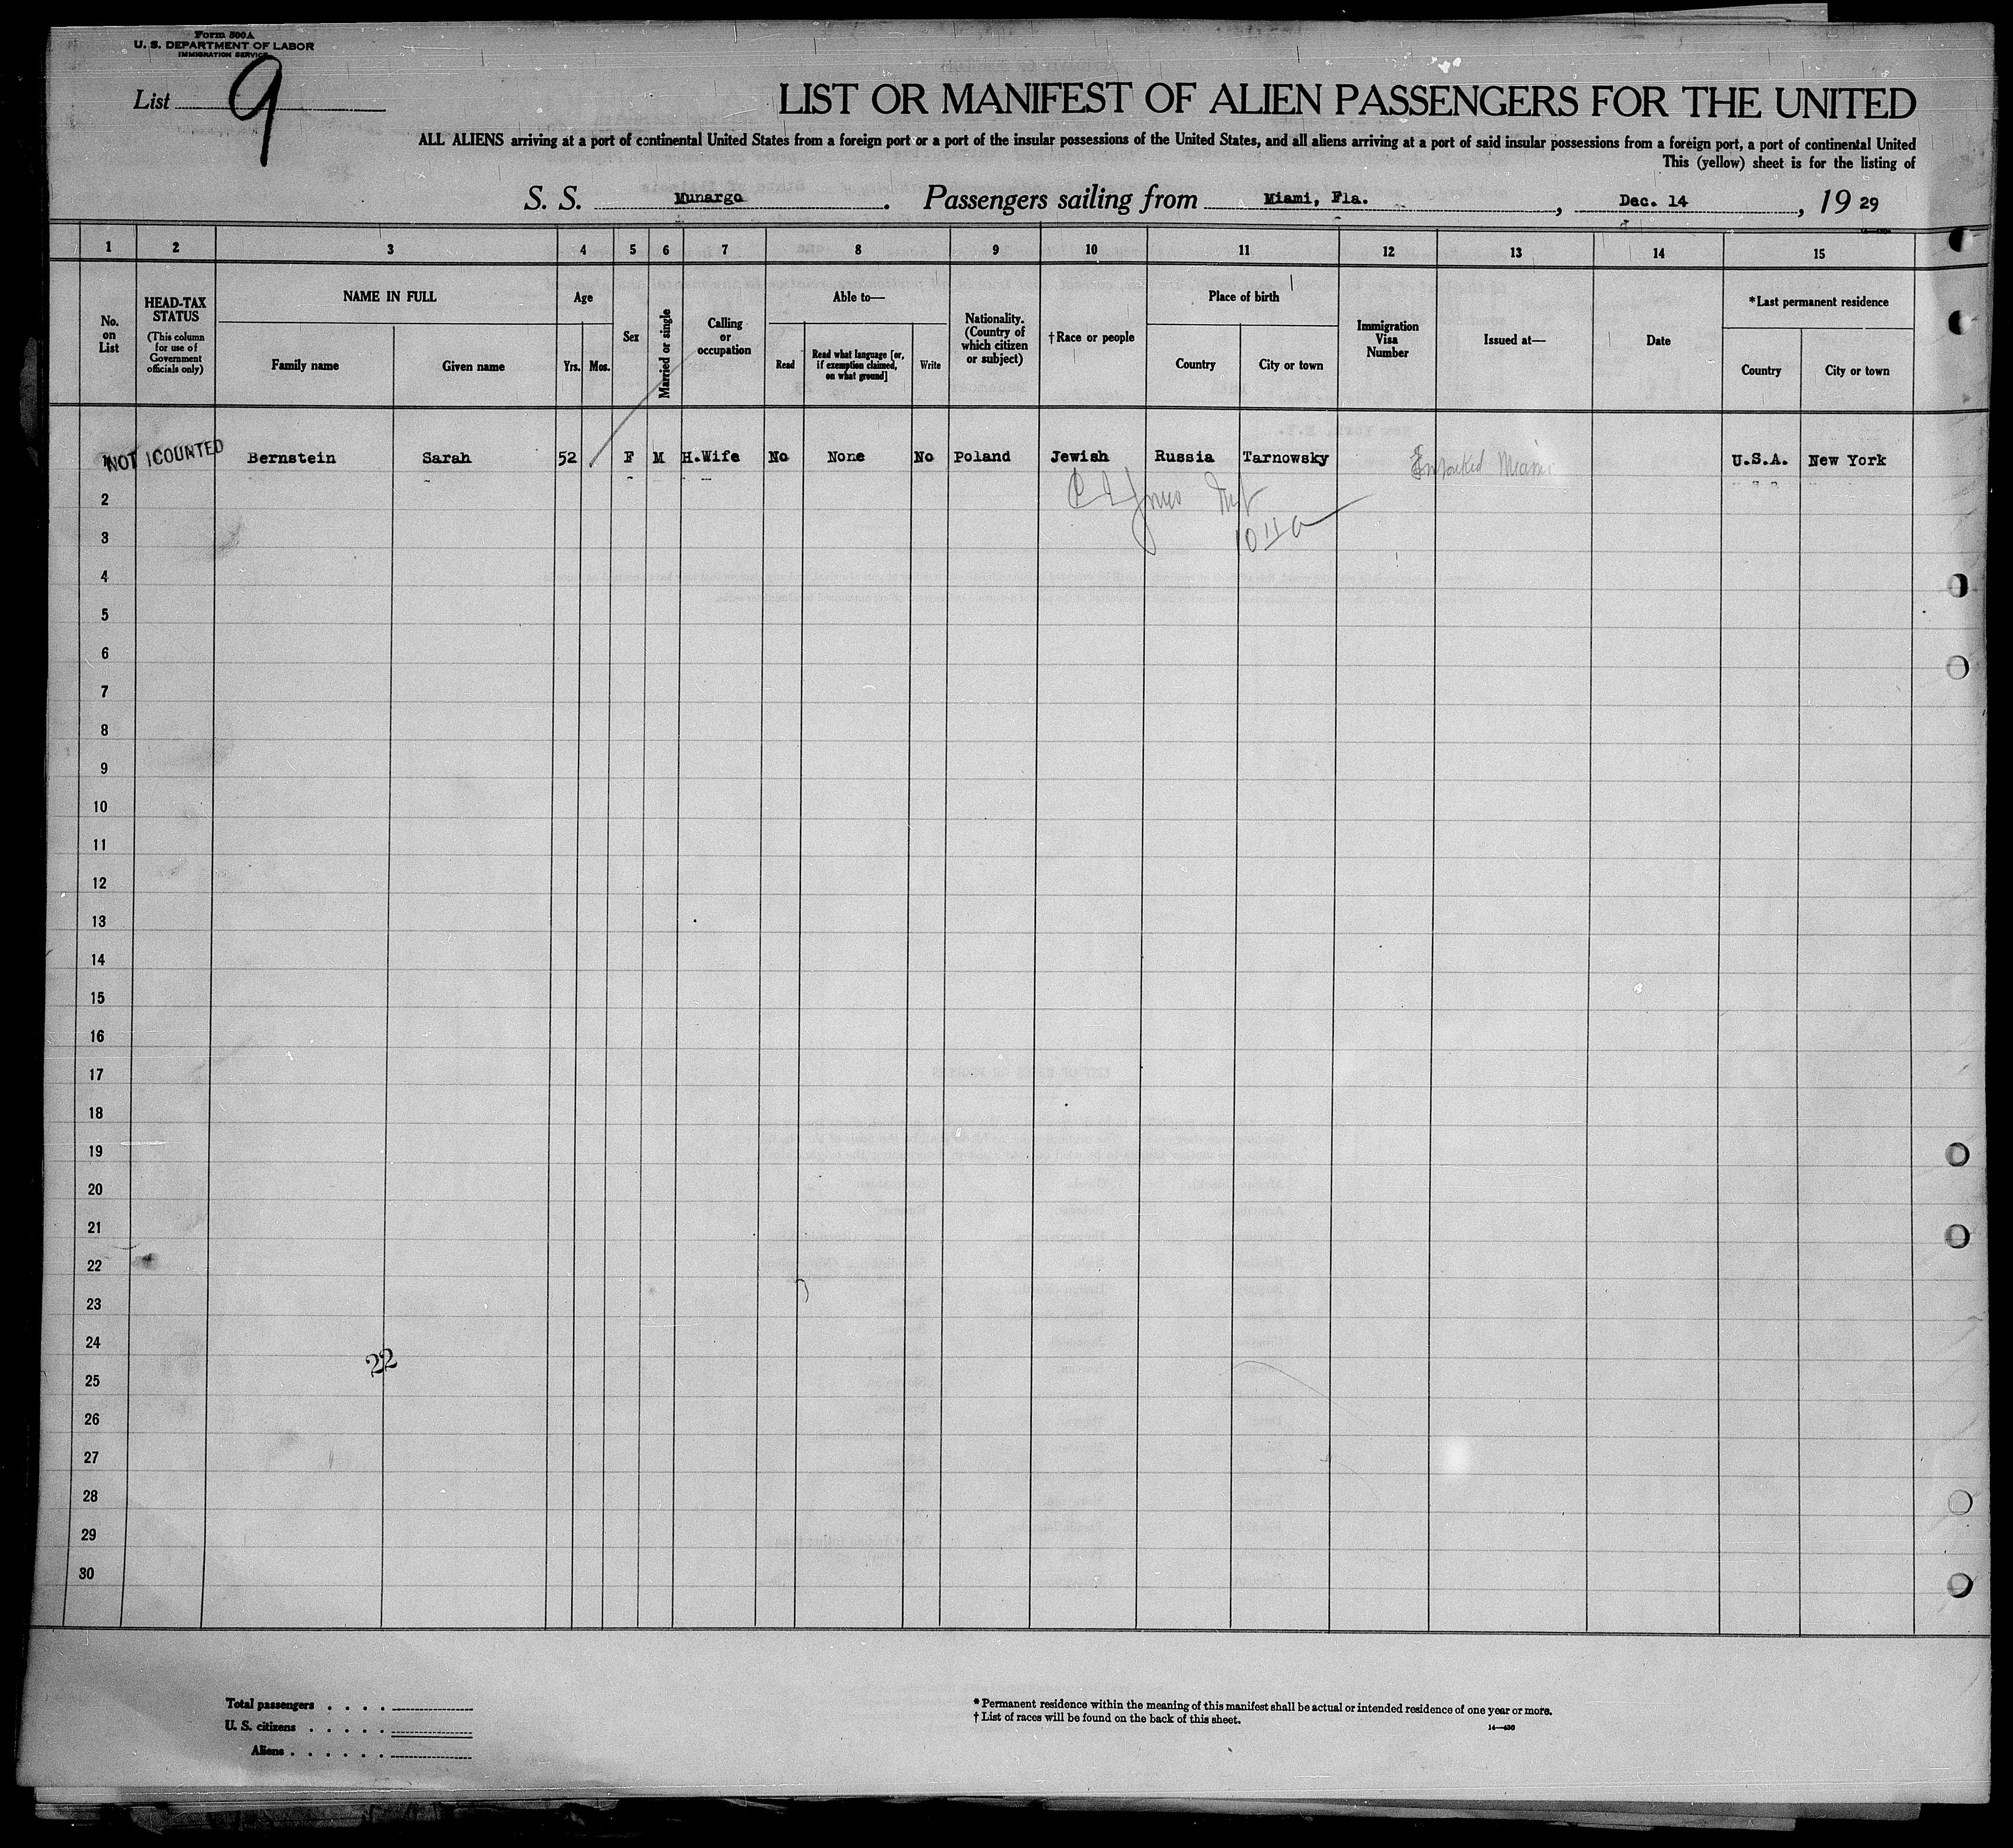 Form 500A
U. S. DEPARTMENT OF LABOR
IMMIGRATION SERVICE
List 9
LIST OR MANIFEST OF ALIEN PASSENGERS FOR THE UNITED
ALL ALIENS arriving at a port of continental United States from a foreign port or a port of the insular possessions of the United States, and all aliens arriving at a port of said insular possessions from a foreign port, a port of continental United
This (yellow) sheet is for the listing of
S. S. Munargo. Passengers sailing from Miami, Fla., Dec. 14, 19 29
1 2 3 4 5 6 7 8 9 10 11 12 13 14 15
No. on List
HEAD-TAX STATUS
(This column for use of Government officials only)
NAME IN FULL
Family name
Given name
Age
Yrs.
Mos.
Sex
Married or single
Calling or occupation
Able to—
Read
Read what language [or, if exemption claimed, on what ground]
Write
Nationality. (Country of which citizen or subject)
† Race or people
Place of birth
Country
City or town
Immigration Visa Number
Issued at—
Date
*Last permanent residence
Country
City or town
NOT COUNTED Bernstein Sarah 52 F M H.Wife No None No Poland Jewish Russia Tarnowsky Miami U.S.A. New York
2
3
4
5
6
7
8
9
10
11
12
13
14
15
16
17
18
19
20
21
22
23
24
22
25
26
27
28
29
30
Total passengers . . . .
U. S. citizens . . . . .
Aliens . . . . . .
* Permanent residence within the meaning of this manifest shall be actual or intended residence of one year or more.
† List of races will be found on the back of this sheet.
14—430